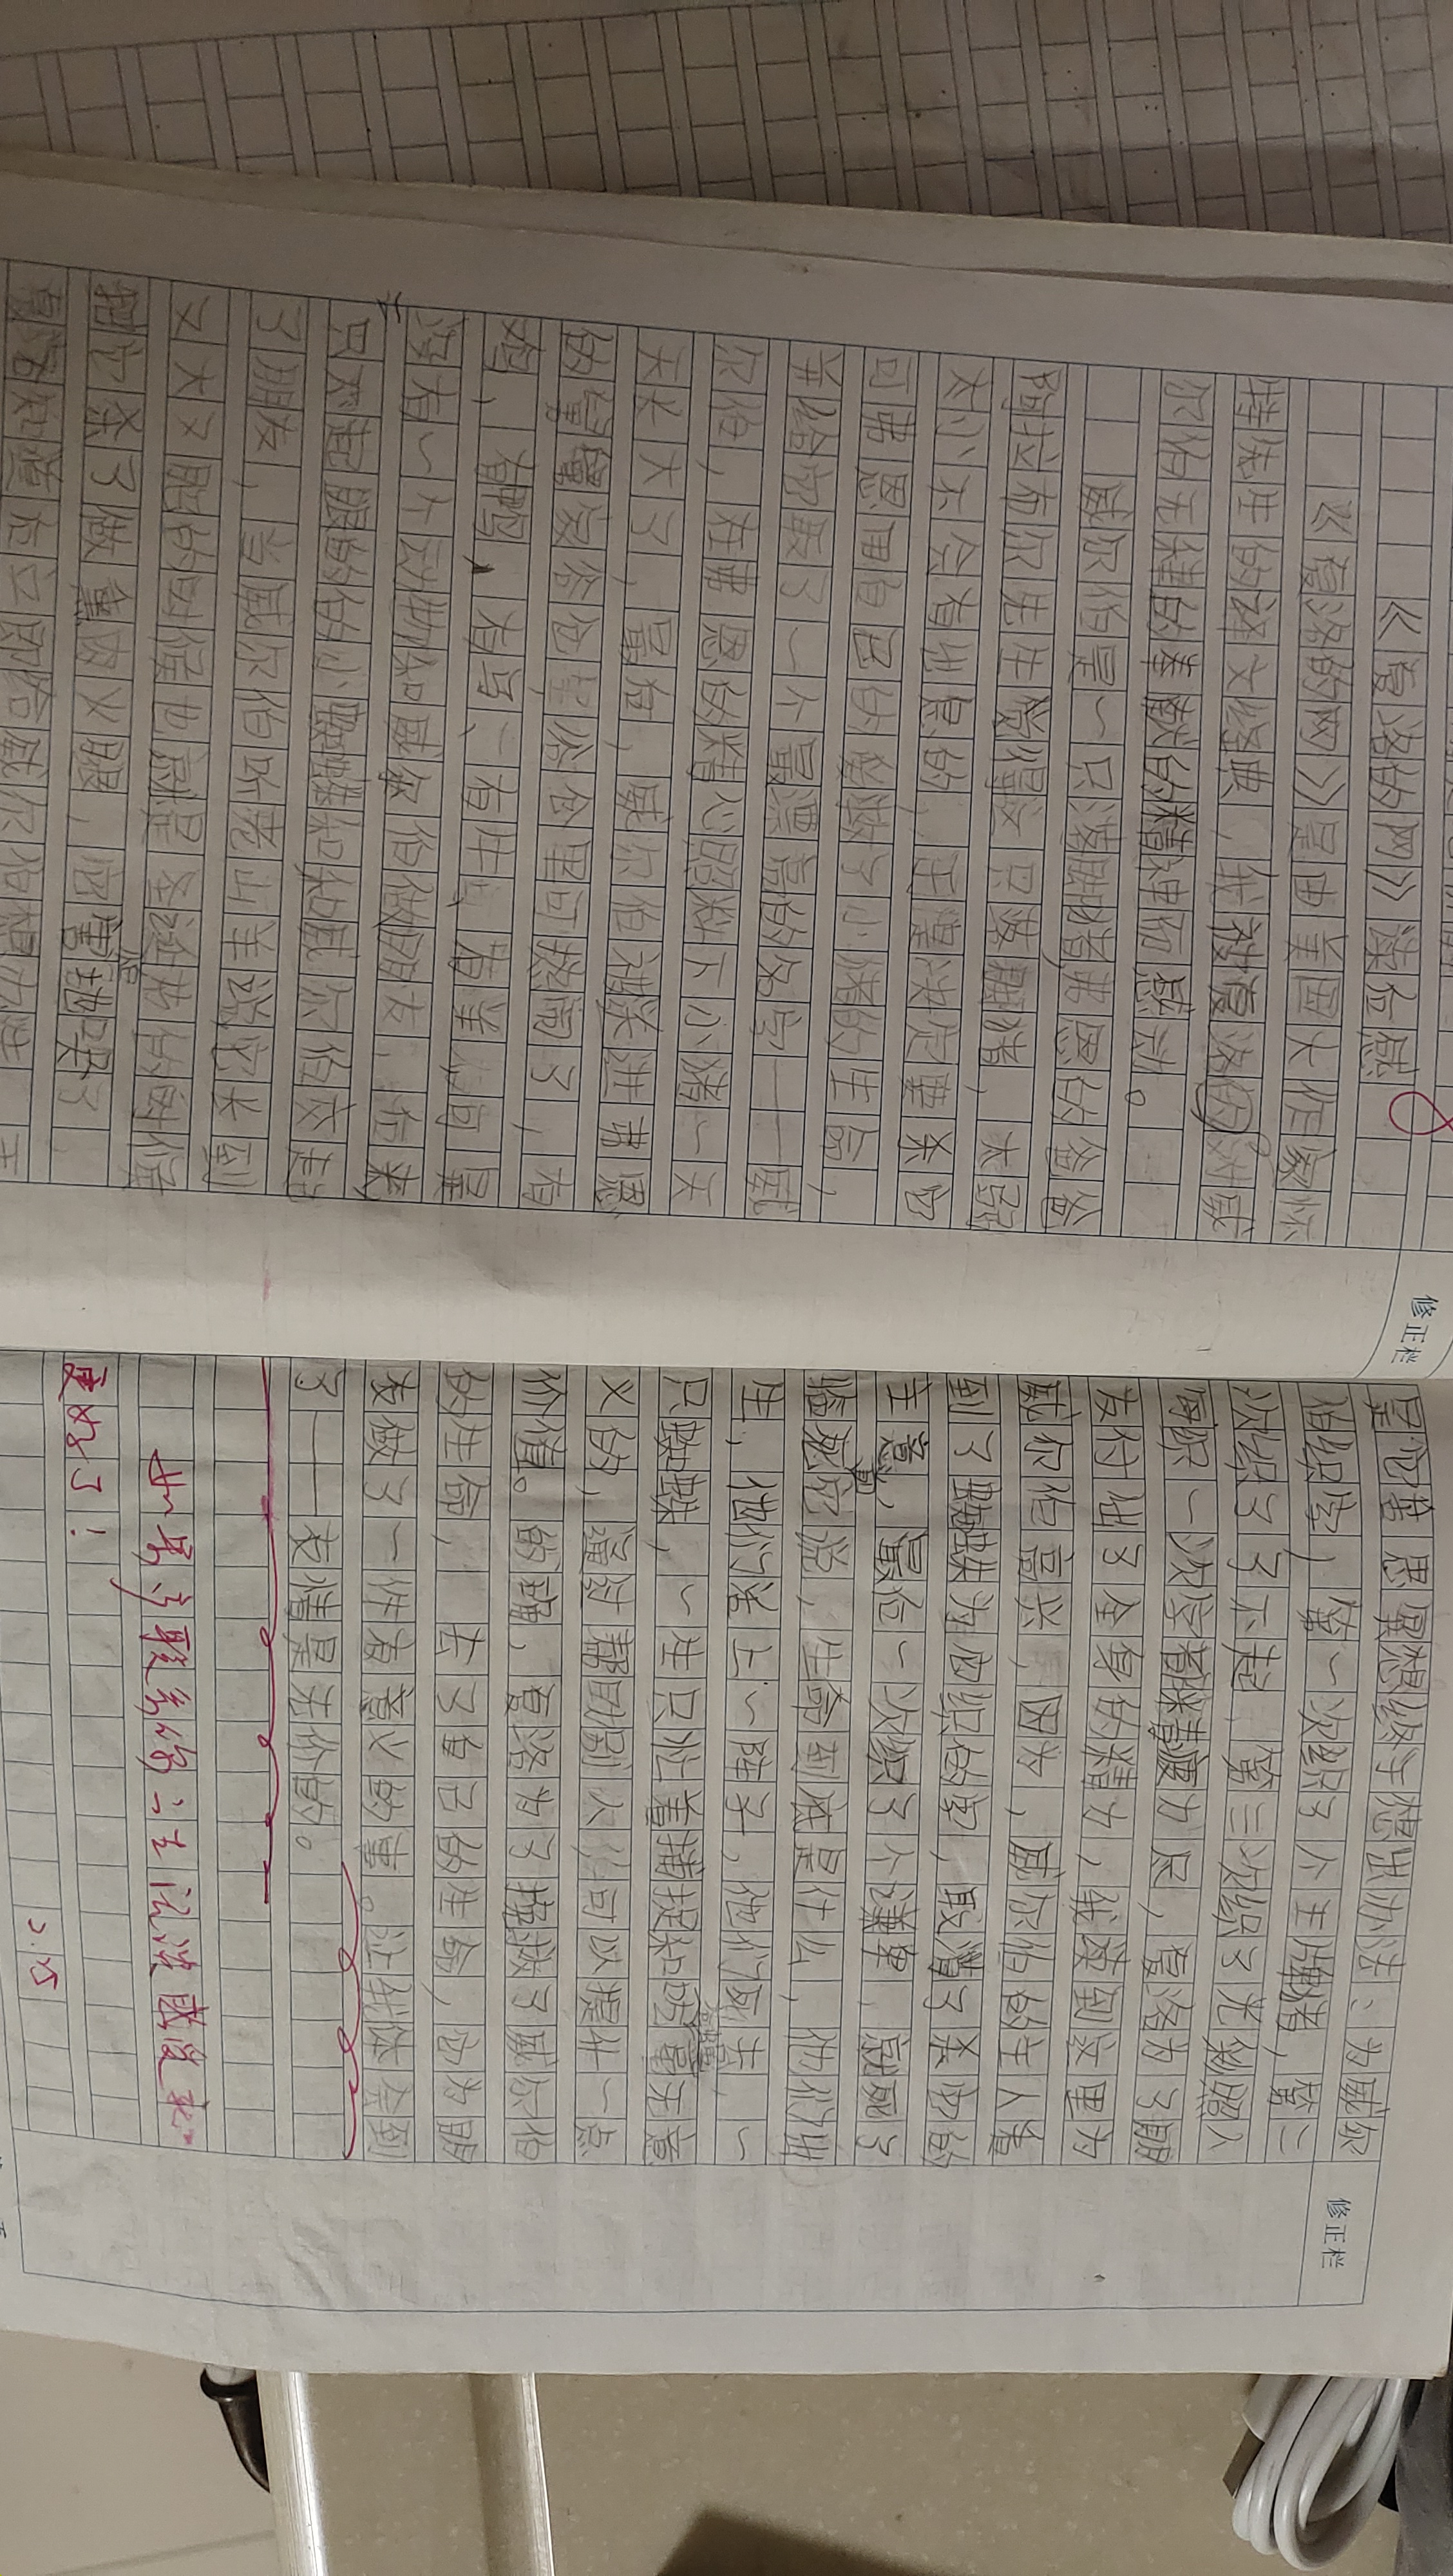 《夏洛的网》读后感
《夏洛的网》是由美国大作家怀
特先生的译文经典，我被夏洛的对威
尔伯无継的奉献的精神而感动。
威尔伯是一只落脚猪弗恩的爸爸
阿拉布尔先生觉得这只落脚猪，太弱
太小不会有出息的，正当决定要杀它
可弗恩用自己的
并给它取了一个最漂亮的名字——威
尔伯，在弗恩的精心照料下小猪一天
天长大了，最后，威尔伯被送进弗恩
的舅舅家谷仓里谷仓里可热闹了，有
鸡，有鸭，有马、有牛、有羊但是
没有一个动物和威尔伯做朋友，后来
只不起眼的的小蜘蛛和和威尔伯交起
了朋友，当威尔伯听老山羊说它长到
又大又肥的时候也就是圣诞节的时候
把它杀了做熏肉火腿，它害怕地哭了，
夏洛知道后立即给威尔伯想办法
是它苦思冥想终于想出办法：为威尔
伯织字，第一次织了个王牌猪，第二
次织了了不起，第三次织了光彩照人
每织一次字都筋疲力尽，夏洛为了朋
友付出了全身的精力，我读到这里为
威尔伯高兴，因为，威尔伯的主人看
到了蜘蛛为它织的字，取消了杀它的
主意，最后一次织了个谦卑，就死了
临死前它说，生命到底是什么，他们出
生，他们活上一阵子，他们死去，一
只蜘蛛，一生只忙着捕捉和吃苍蝇无意
义的，通过帮助别人你可以提升一点
价值。的确，夏洛为了拯救了威尔伯
的生命，丢了自己的生命，它为朋
友做了一件有意义的事。让我体会到
了——友情是无价的。
如果多联系结合生活谈感受就
更好了！
2.15
修正栏
修正栏